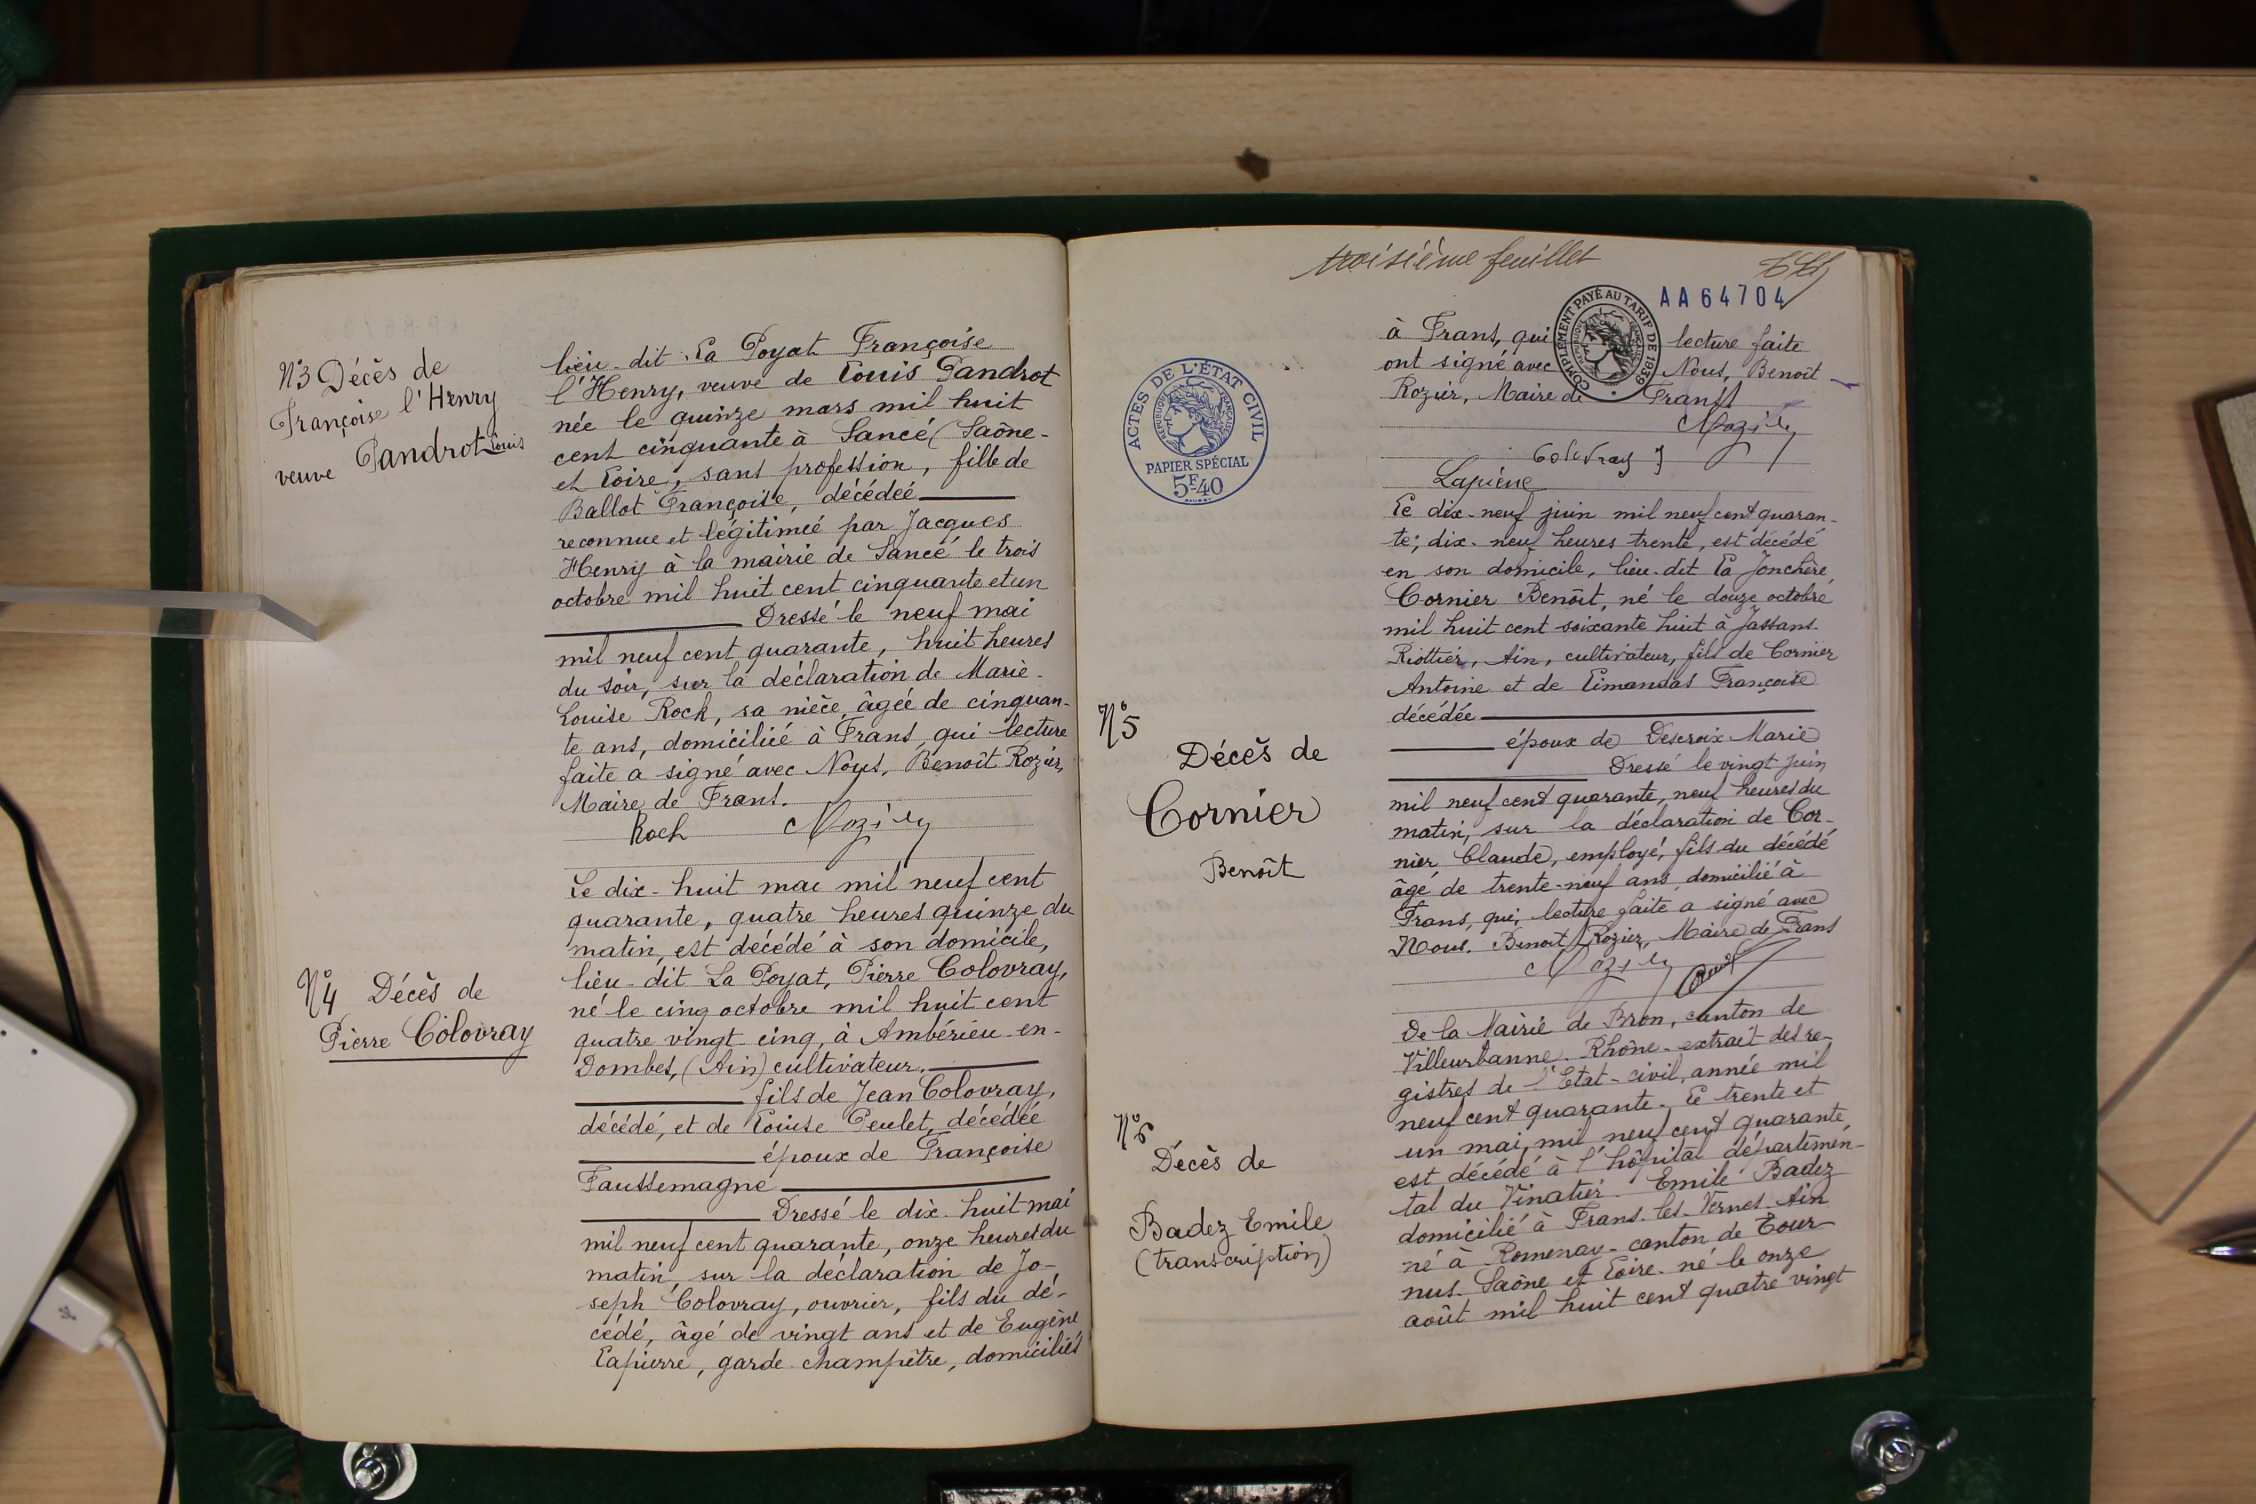 N°3 Décès de
Françoise l'Henry
veuve Pandrot Louis
lieu-dit La Poyat Françoise
l'Henry, veuve de Louis Pandrot
née le quinze mars mil huit
cent cinquante à Sancé (Saône-
et Loire, sans profession, fille de
Ballot Françoise, décédée
reconnue et légitimée par Jacques
Henry à la mairie de Sancé le trois
octobre mil huit cent cinquante et un
Dressé le neuf mai
mil neuf cent quarante, huit heures
du soir, sur la déclaration de Marie-
Louise Roch, sa nièce, âgée de cinquan-
te ans, domiciliée à Frans, qui lecture
faite a signé avec Nous, Benoît Rozier,
Maire de Frans.
Roch
N°4 Décès de
Pierre Colovray
Le dix-huit mai mil neuf cent
quarante, quatre heures quinze du
matin, est décédé à son domicile,
lieu-dit La Poyat, Pierre Colovray,
né le cinq octobre mil huit cent
quatre vingt cinq, à Ambérieu-en-
Dombes, (Ain) cultivateur.
fils de Jean Colovray,
décédé, et de Louise Peulet, décédée
époux de Françoise
Faussemagne
Dressé le dix-huit mai
mil neuf cent quarante, onze heures du
matin, sur la déclaration de Jo-
seph Colovray, ouvrier, fils du dé-
cédé, âgé de vingt ans et de Eugène
Lapierre, garde-champêtre, domiciliés
troisième feuillet
AA 64704
COMPLÉMENT PAYÉ AU TARIF DE 1939
ACTES DE L'ÉTAT CIVIL
RÉPUBLIQUE FRANÇAISE
PAPIER SPÉCIAL
5F40
à Frans, qui lecture faite
ont signé avec Nous, Benoît
Rozier, Maire de Frans
Colovray
Lapierre
N°5
Décès de
Cornier
Benoît
Le dix-neuf juin mil neuf cent quaran-
te; dix-neuf heures trente, est décédé
en son domicile, lieu-dit La Jonchère,
Cornier Benoît, né le douze octobre
mil huit cent soixante huit à Jassans-
Riottier, Ain, cultivateur, fils de Cornier
Antoine et de Limandas Françoise
décédée
époux de Descroix Marie
Dressé le vingt juin
mil neuf cent quarante, neuf heures du
matin, sur la déclaration de Cor-
nier Claude, employé, fils du décédé
âgé de trente-neuf ans, domicilié à
Frans, qui, lecture faite a signé avec
Nous. Benoît Rozier, Maire de Frans
N°6
Décès de
Badez Emile
(transcription)
De la Mairie de Bron, canton de
Villeurbanne. Rhône. extrait des re-
gistres de l'Etat-civil, année mil
neuf cent quarante. Le trente et
un mai, mil neuf cent quarante,
est décédé à l'hôpital départemen-
tal du Vinatier. Emile Badez
domicilié à Frans-les-Vernes-Ain
né à Romenay-canton de Tour-
nus-Saône et Loire-né le onze
août mil huit cent quatre vingt